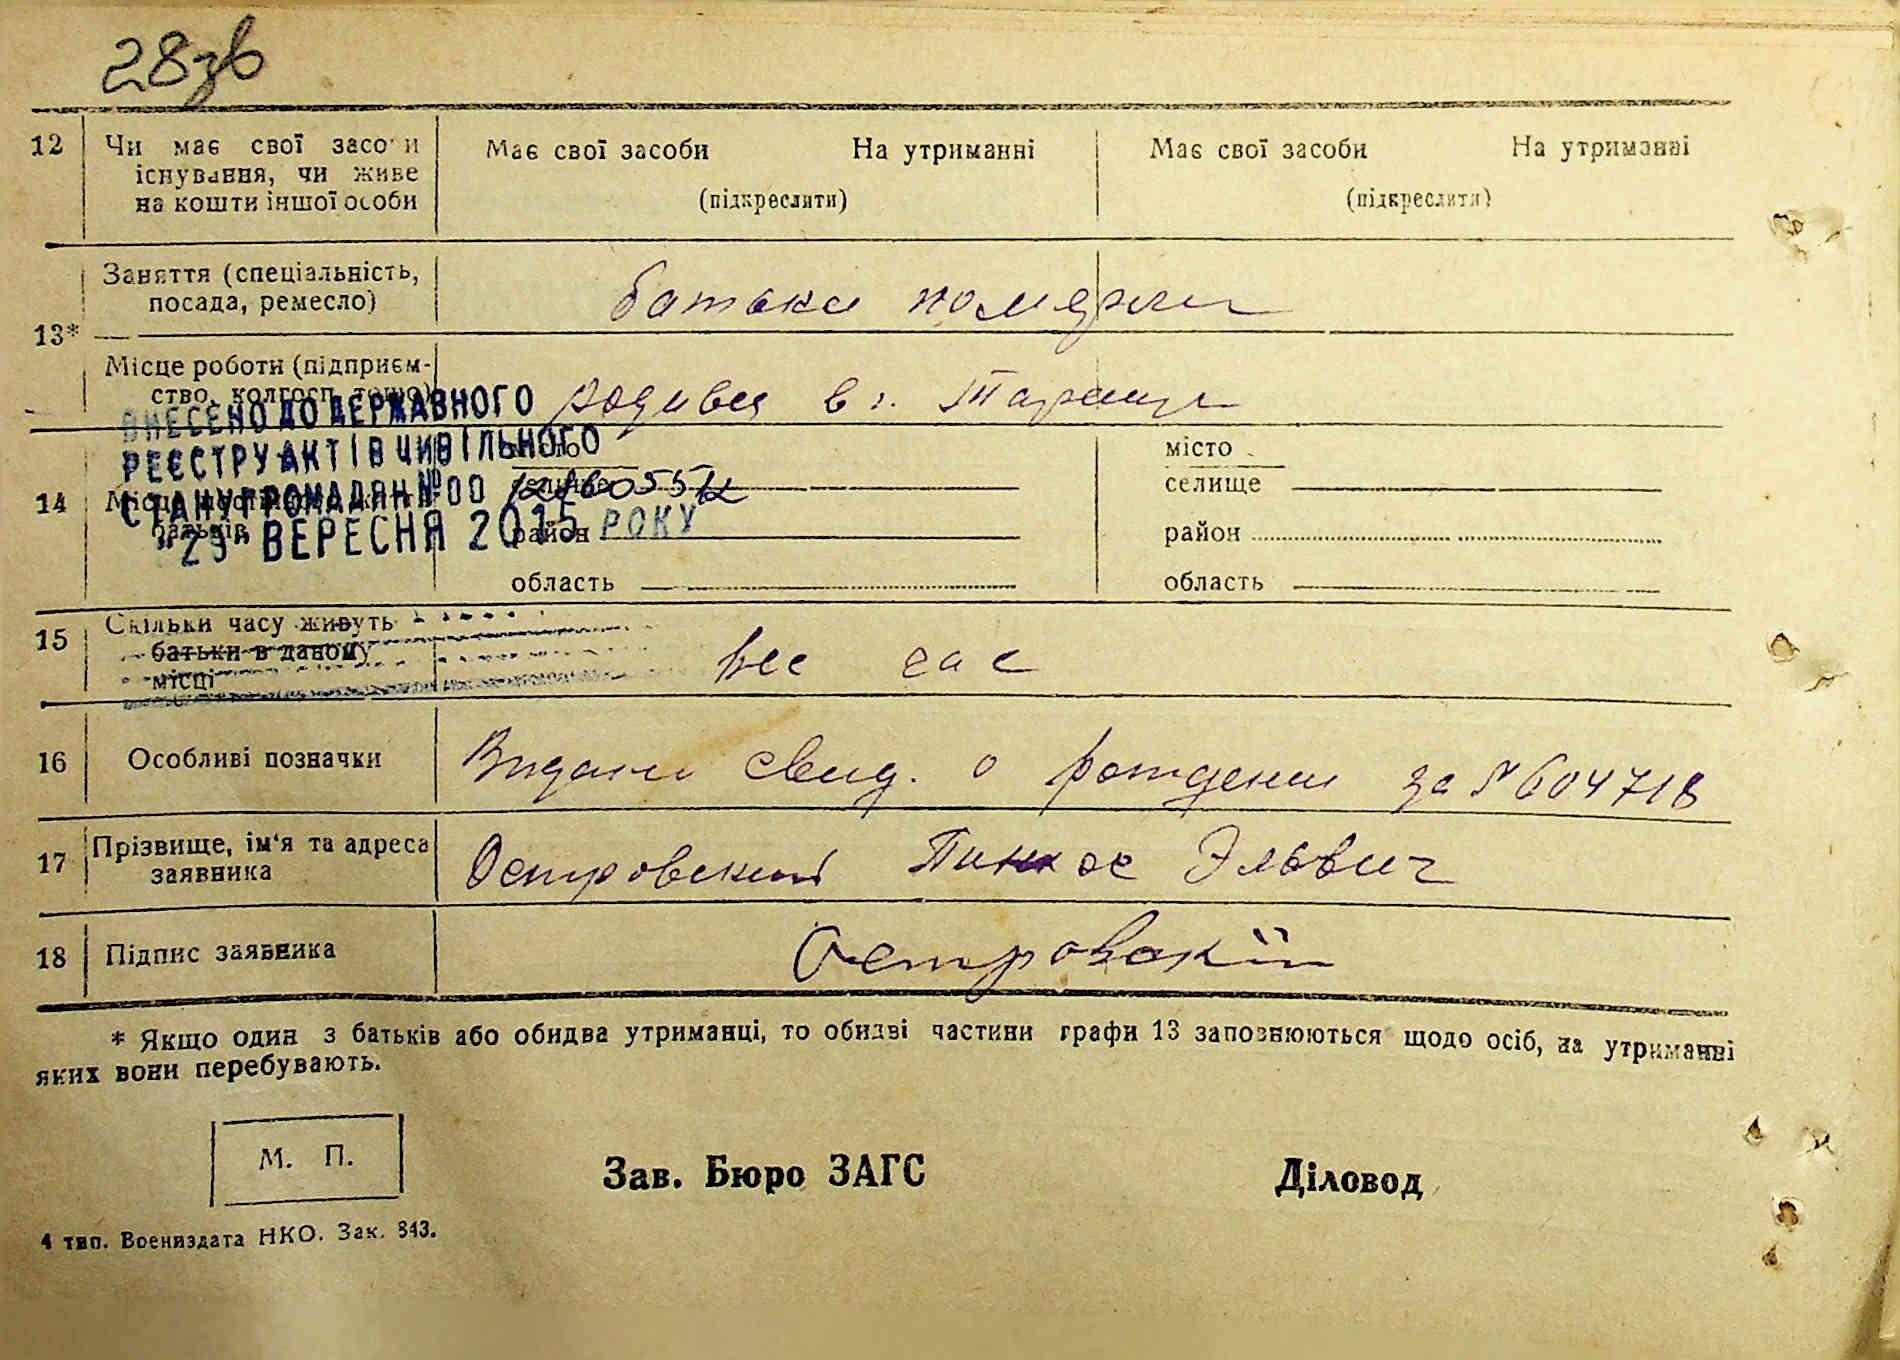 28зв
12 Чи має свої засо и Має свої засоби На утриманні Має свої засоби На утриманні
існування, чи живе
на кошти іншої особи (підкреслити) (підкреслити)
Заняття (спеціальність,
посада, ремесло) батьки померли
13*
Місце роботи (підприєм-
ство, колгосп, тощо) родився в г. Тараща
ВНЕСЕНО ДО ДЕРЖАВНОГО
РЕЄСТРУ АКТІВ ЦИВІЛЬНОГО місто
СТАНУ ГРОМАДЯН №00 селище
14 батьків
"23" ВЕРЕСНЯ 2015 РОКУ район район
область область
15 Скільки часу живуть
батьки в даному
місці вес час
16 Особливі позначки Видано свид. о рождении за № 604718
17 Прізвище, ім'я та адреса
заявника Островский Пинхос Эльевич
18 Підпис заявника Островский
* Якщо один з батьків або обидва утриманці, то обидві частини графи 13 заповнюються щодо осіб, на утриманні
яких вони перебувають.
М. П.
Зав. Бюро ЗАГС Діловод
4 тип. Воениздата НКО. Зак. 843.